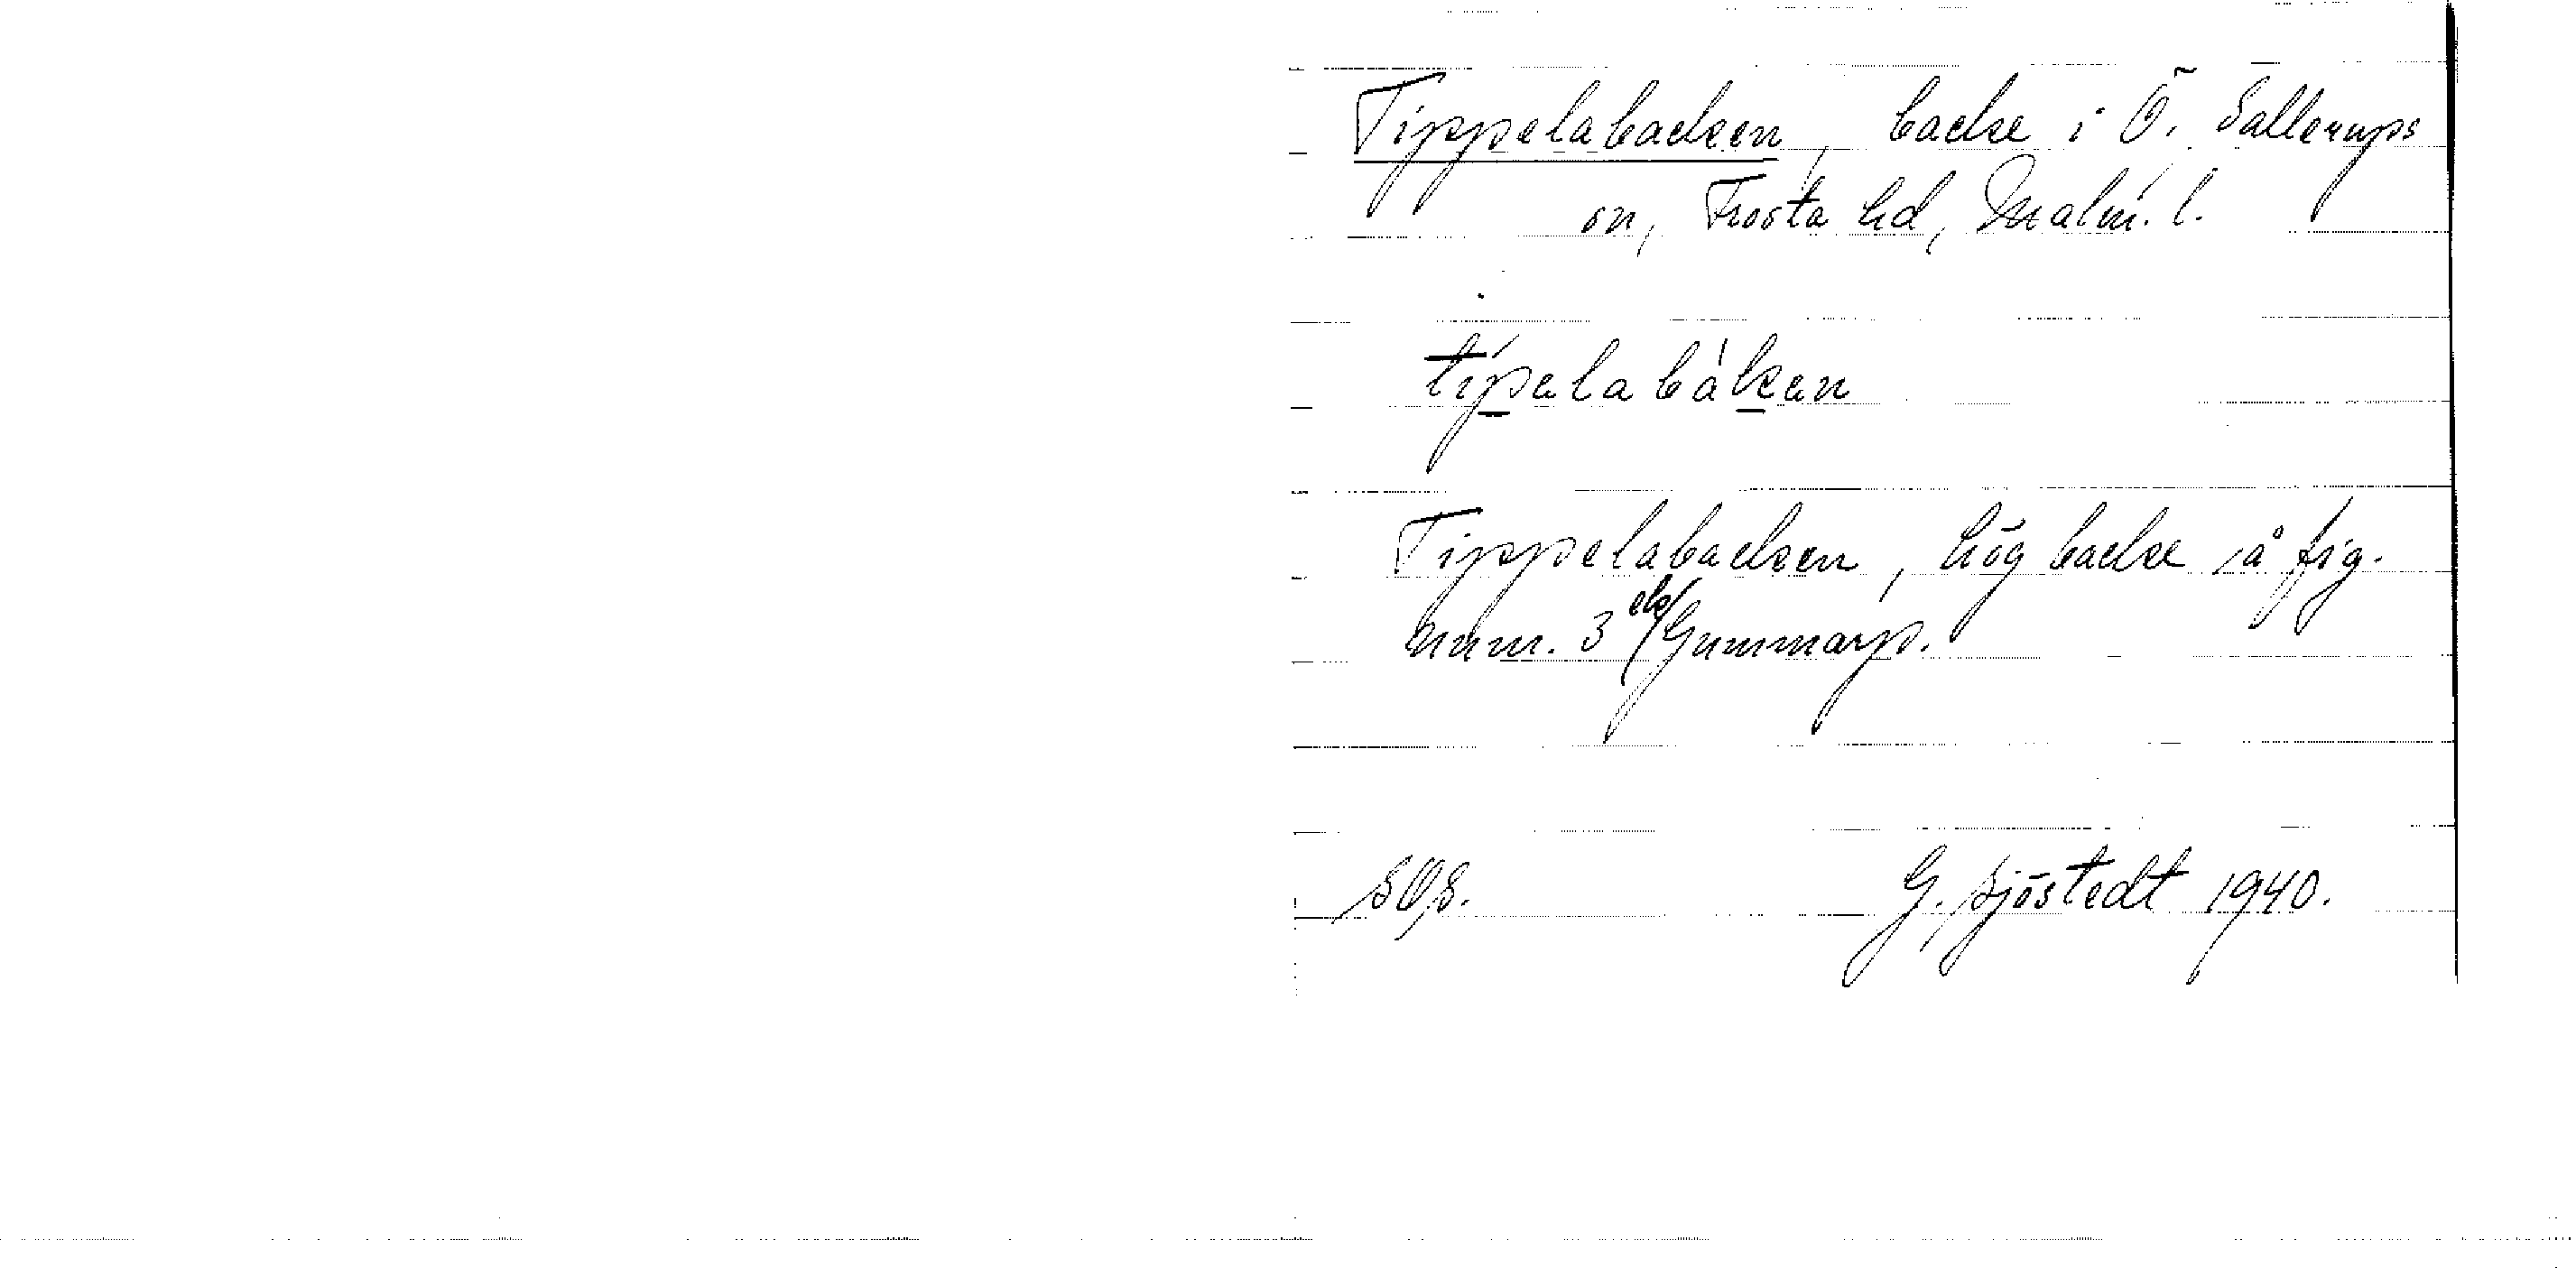 Tippelabacken, backe i Ö. Sallerups
sn, Frosta hd, Malm. l.
típelabàken
Tippelabacken, hög backe å fig.
num. 3 els/ Gummarp.
SOS. G. Sjöstedt 1940.